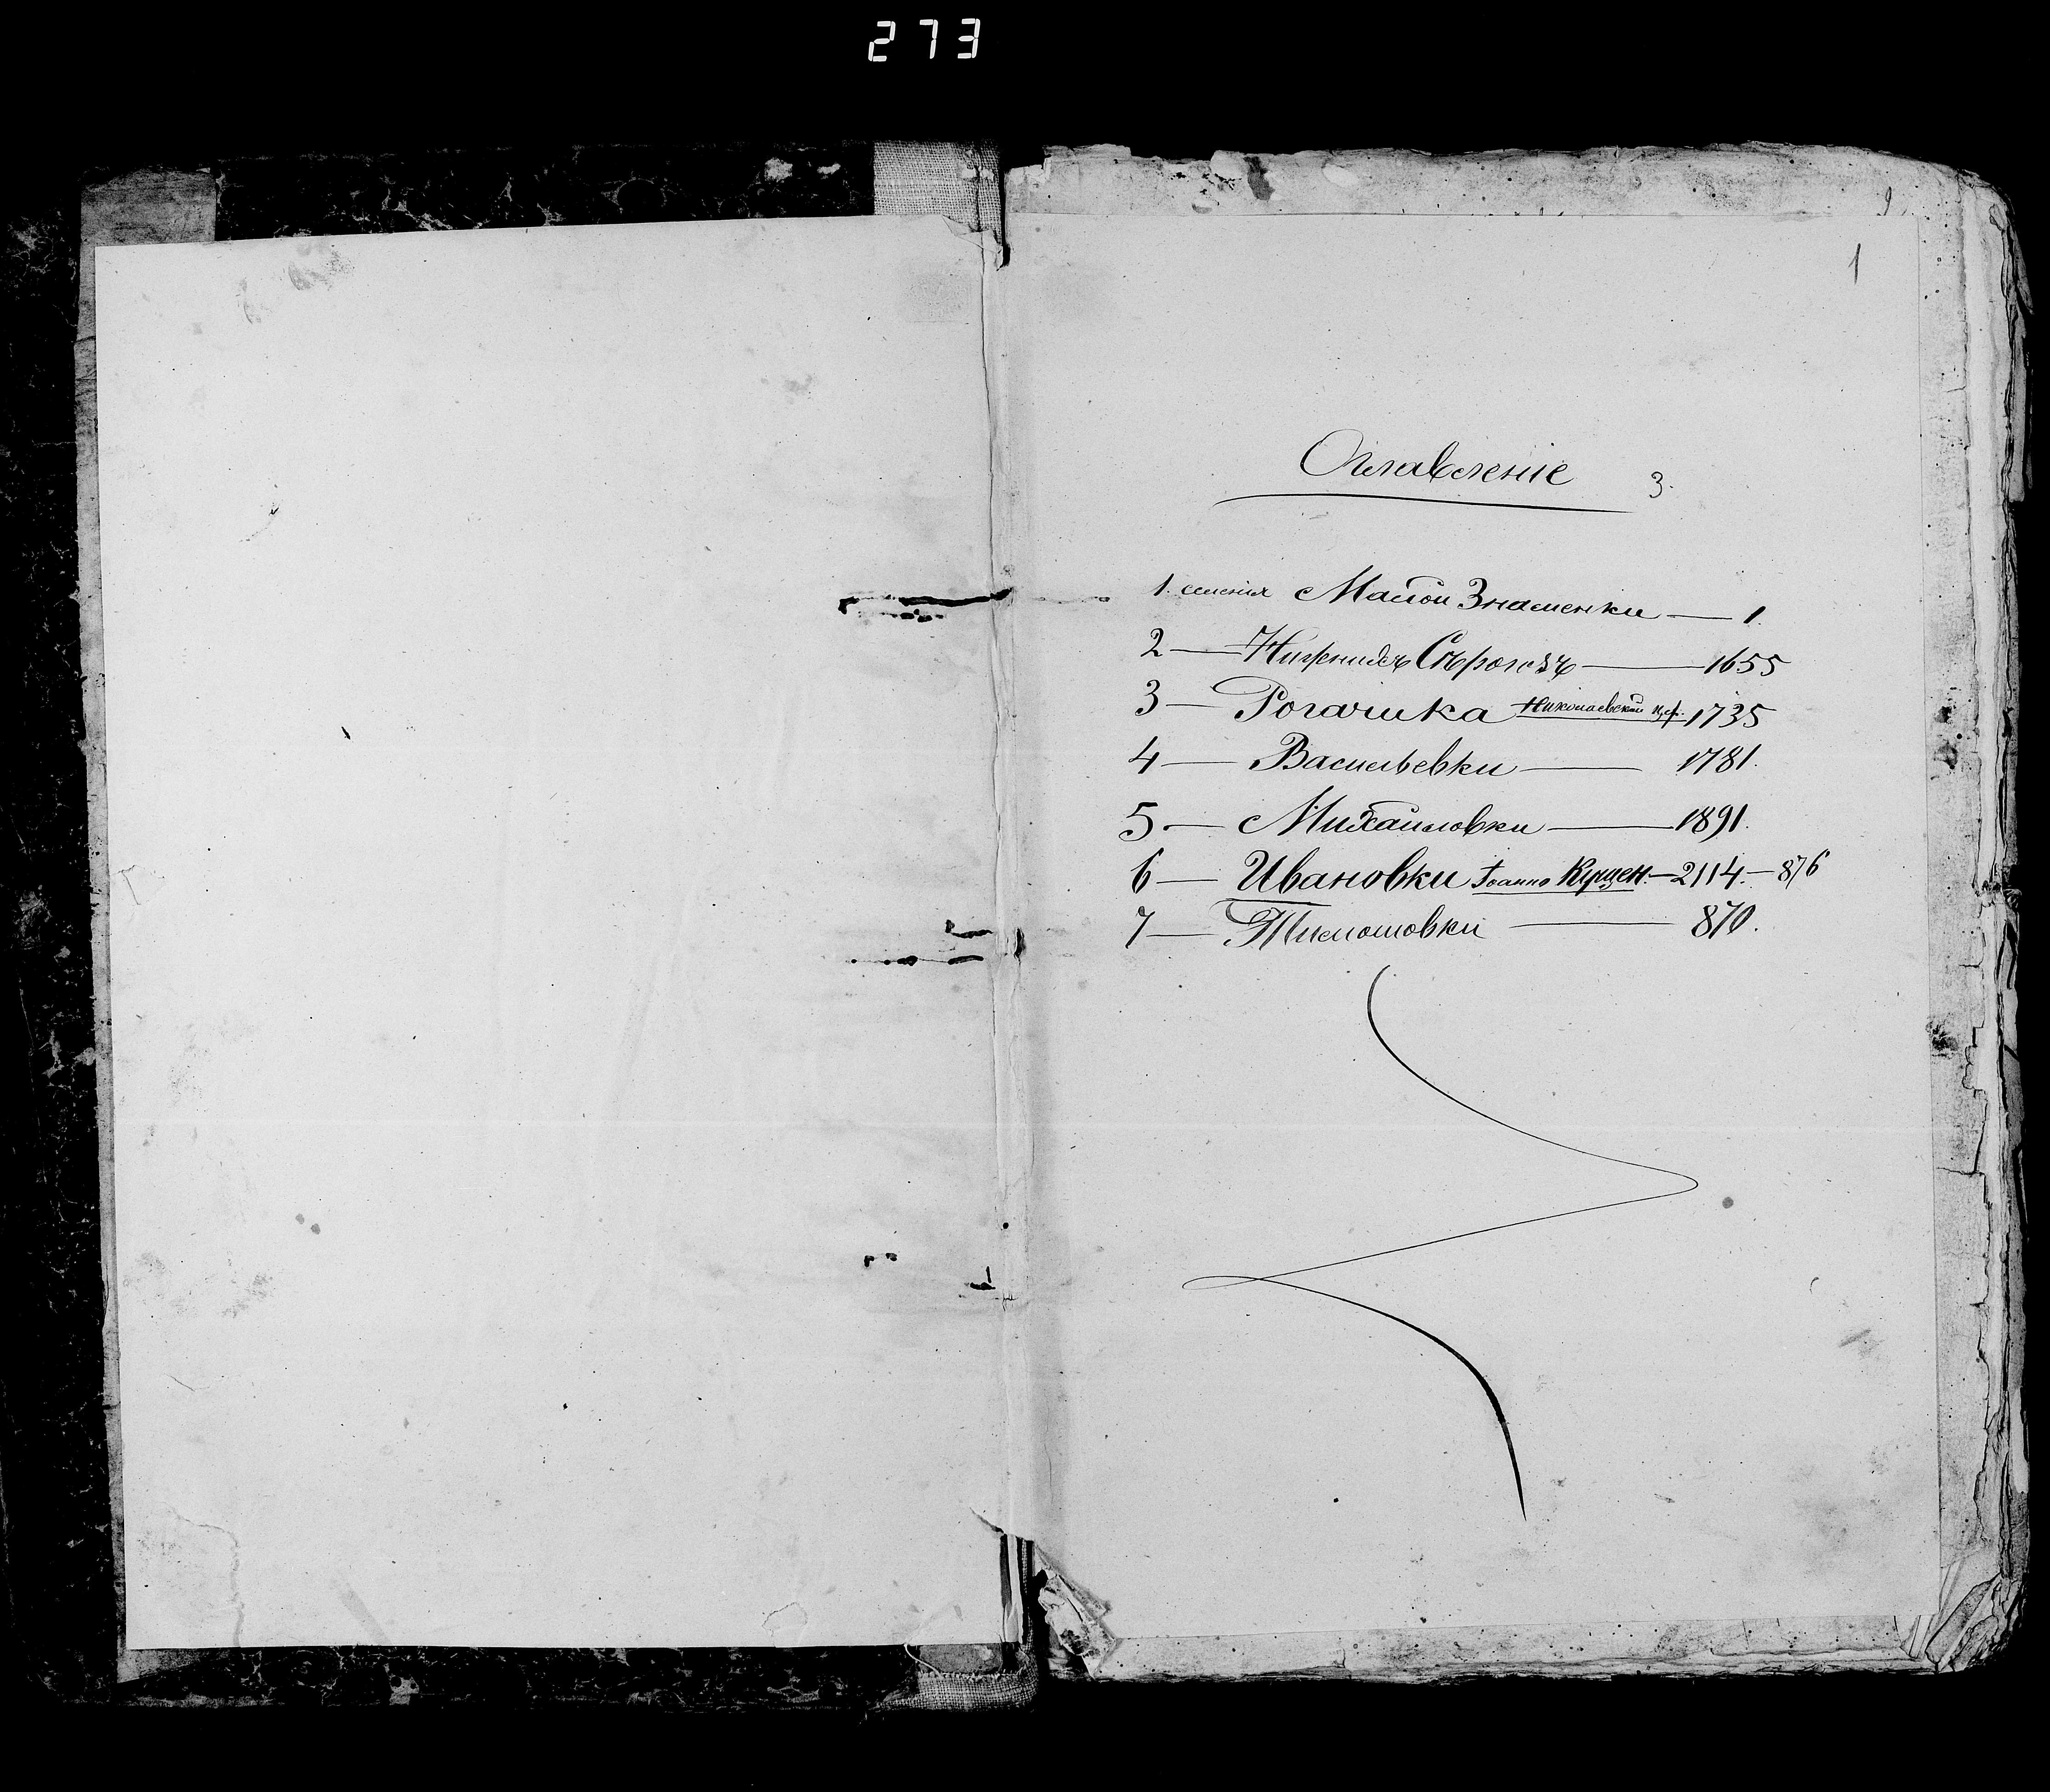 273
9
1
Оглавленіе 3.
1. селенія Малой Знаменки — 1.
2 — Нижнихъ Сѣрогозъ — 1655
3 — Рогачика Николаевской ц. 1735
4 — Васильевки — 1781.
5. — Михайловки — 1891.
6 — Ивановки Іоанно Кущен. — 2114. — 876
7 — Тимошовки — 870.